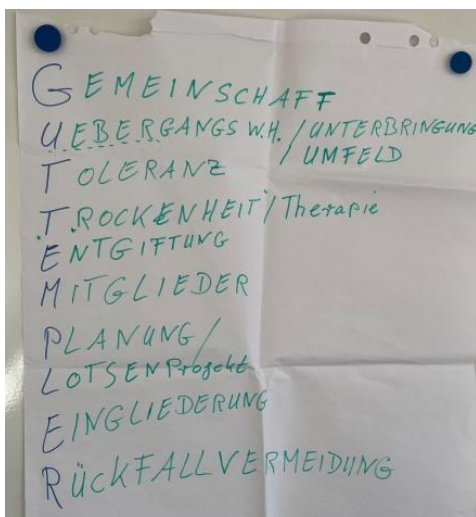 GEMEINSCHAFT
UEBERGANGS W.H. / UNTERBRINGUNG
/ UMFELD
TOLERANZ
TROCKENHEIT / Therapie
ENTGIFTUNG
MITGLIEDER
PLANUNG /
LOTSENProjekt
EINGLIEDERUNG
RÜCKFALLVERMEIDUNG